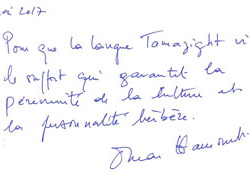 mai 2017
Pour que la langue Tamazight vi
le support qui garantit la
pérennité de la culture et
la personnalité berbère.